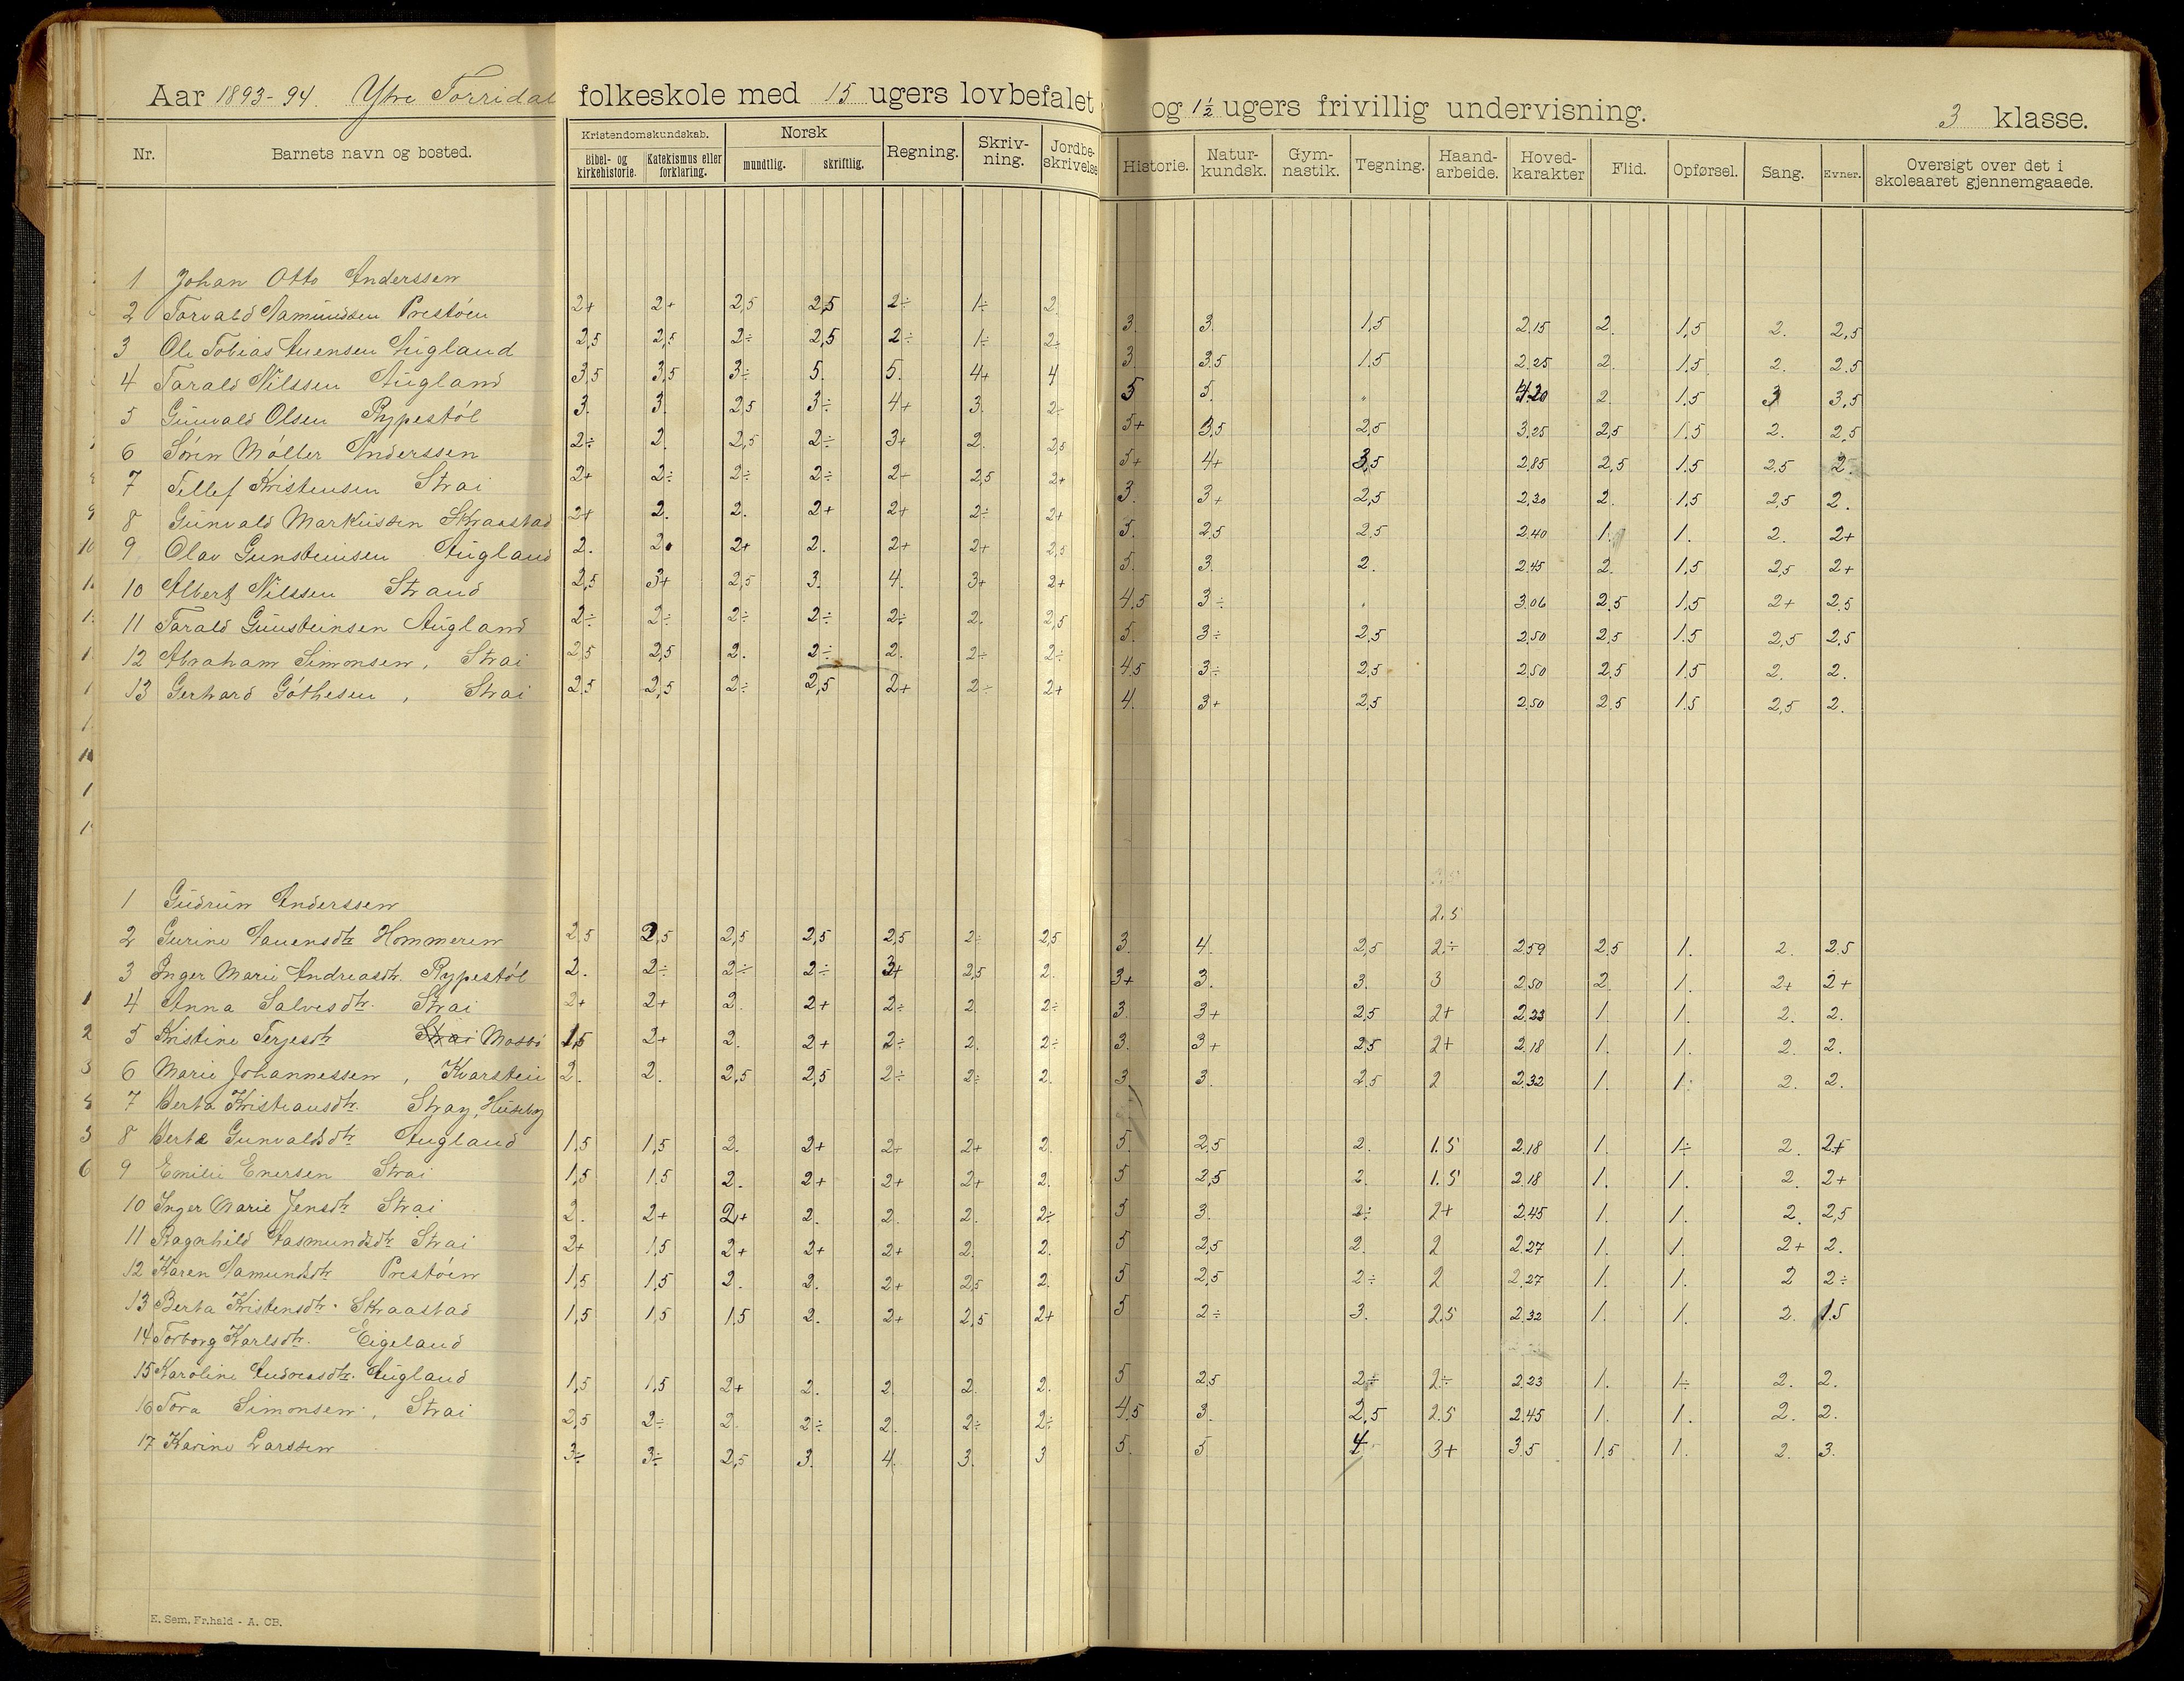 Aar 1893-94. Ytre Torridal folkeskole med 15 ugers lovbefalet og 1½ ugers frivillig undervisning. 3 klasse.
Nr. Barnets navn og bosted. Kristendomskundskab. Bibel- og kirkehistorie. Katekismus eller forklaring. Norsk mundtlig. skriftlig. Regning. Skriv-ning. Jordbe-skrivelse Historie. Natur-kundsk. Gym-nastik. Tegning. Haand-arbeide. Hoved-karakter Flid. Opførsel. Sang. Evner. Oversigt over det i skoleaaret gjennemgaaede.
1 Johan Otto Anderssen
2 Torvald Aamundsen Prestöen 2+ 2+ 2,5 2,5 2÷ 1÷ 2. 3. 3. 1,5 2.15 2. 1,5 2. 2,5
3 Ole Tobias Auensen Augland 2,5 2,5 2÷ 2,5 2÷ 1÷ 2÷ 3. 3.5 1.5 2.25 2. 1.5 2. 2.5
4 Tarald Nilssen Augland 3,5 3,5 3÷ 5. 5. 4+ 4 5 5. " 4.20 2. 1.5 3 3,5
5 Gunvald Olsen Rypestöl 3. 3. 2,5 3÷ 4+ 3. 2÷ 5+ 3,5 2,5 3.25 2,5 1.5 2. 2,5
6 Sören Möller Anderssen 2÷ 2. 2,5 2÷ 3+ 2. 2,5 5+ 4+ 3,5 2.85 2,5 1.5 2,5 2.
7 Tellef Kristensen Strai 2+ 2÷ 2÷ 2÷ 2+ 2,5 2+ 3. 3+ 2,5 2.30 2. 1,5 2,5 2.
8 Gunvald Markussen Skraastad 2+ 2. 2. 2+ 2+ 2÷ 2+ 5. 2.5 2.5 2.40 1. 1. 2. 2+
9. Olav Gunsteinsen Augland 2. 2. 2+ 2. 2+ 2+ 2,5 5. 3. 2. 2.45 2. 1,5 2,5 2+
10 Albert Nilssen Strand 2,5 3+ 2,5 3. 4. 3+ 2+ 4.5 3÷ " 3.06 2.5 1,5 2+ 2.5
11 Tarald Gunsteinsen Augland 2÷ 2÷ 2÷ 2÷ 2÷ 2. 2,5 5. 3÷ 2,5 2.50 2.5 1.5 2,5 2,5
12 Abraham Simonsen, Strai 2,5 2,5 2. 2÷ 2. 2÷ 2÷ 4.5 3÷ 2,5 2.50 2.5 1.5 2. 2.
13 Gerhard Göthesen, Strai 2.5 2,5 2÷ 2,5 2+ 2÷ 2+ 4. 3+ 2,5 2.50 2.5 1.5 2,5 2.
1 Gudrun Anderssen 2.5
2 Gurine Aauensdtr Hommeren 2,5 2,5 2,5 2,5 2,5 2÷ 2,5 3. 4. 2,5 2÷ 2.59 2.5 1. 2. 2.5
3 Inger Marie Andreasdtr. Rypestöl 2. 2÷ 2÷ 2÷ 3+ 2,5 2. 3+ 3. 3. 3 2.50 2. 1. 2+ 2+
4 Anna Salvesdtr. Strai 2+ 2+ 2. 2+ 2÷ 2. 2÷ 3. 3+ 2,5 2+ 2.23 1. 1. 2. 2.
5 Kristine Terjesdtr Strai Mosbö 1,5 2+ 2. 2+ 2÷ 2. 2÷ 3. 3+ 2,5 2+ 2.18 1. 1. 2. 2.
6 Marie Johannessen, Kvarstein 2. 2. 2,5 2,5 2÷ 2÷ 2. 3 3. 2.5 2 2.32 1. 1. 2. 2.
7 Berta Kristiansdtr. Stray, Huseby
8 Berte Gunvaldsdtr Augland 1,5 1,5 2. 2+ 2+ 2+ 2. 5. 2,5 2. 1.5 2.18 1. 1÷ 2. 2+
9 Emilie Enersen Strai 1,5 1,5 2. 2+ 2+ 2+ 2. 5 2,5 2. 1.5 2.18 1. 1. 2. 2+
10 Inger Marie Jensdtr Strai 2. 2+ 2+ 2. 2. 2. 2÷ 5 3. 2÷ 2+ 2.45 1. 1. 2. 2,5
11 Ragnhild Aasmundsdtr Strai 2+ 1,5 2+ 2+ 2+ 2. 2. 5 2,5 2. 2 2.27 1. 1. 2+ 2.
12 Karen Aamundsdtr Prestöen 1,5 1,5 2. 2. 2+ 2,5 2. 5 2,5 2÷ 2 2.27 1. 1. 2 2÷
13 Berta Kristensdtr. Skraastad 1,5 1,5 1,5 2. 2+ 2,5 2+ 5 2÷ 3. 2.5 2.32 1. 1. 2. 1.5
14 Torborg Karlsdtr. Eigeland
15 Karoline Andreasdtr. Augland 1,5 1,5 2+ 2. 2. 2. 2. 5 2,5 2÷ 2÷ 2.23 1. 1÷ 2. 2.
16 Tora Simonsen, Strai 2,5 2÷ 2. 2÷ 2. 2÷ 2÷ 4.5 3. 2,5 2.5 2.45 1. 1. 2. 2.
17 Karine Larssen 3÷ 3÷ 2,5 3. 4. 3. 3 5. 5 4 3+ 3.5 1,5 1. 2. 3.
E. Sem, Fr.hald - A. CB.